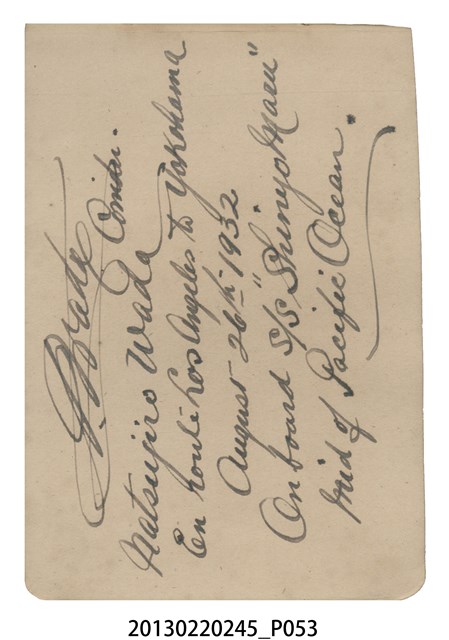 Comdr.
Natsujiro Wada
En route Los Angeles to Yokohama
August 26th 1932
On board S/S "Shinyo Maru"
Mid of Pacific Ocean.
20130220245_P053